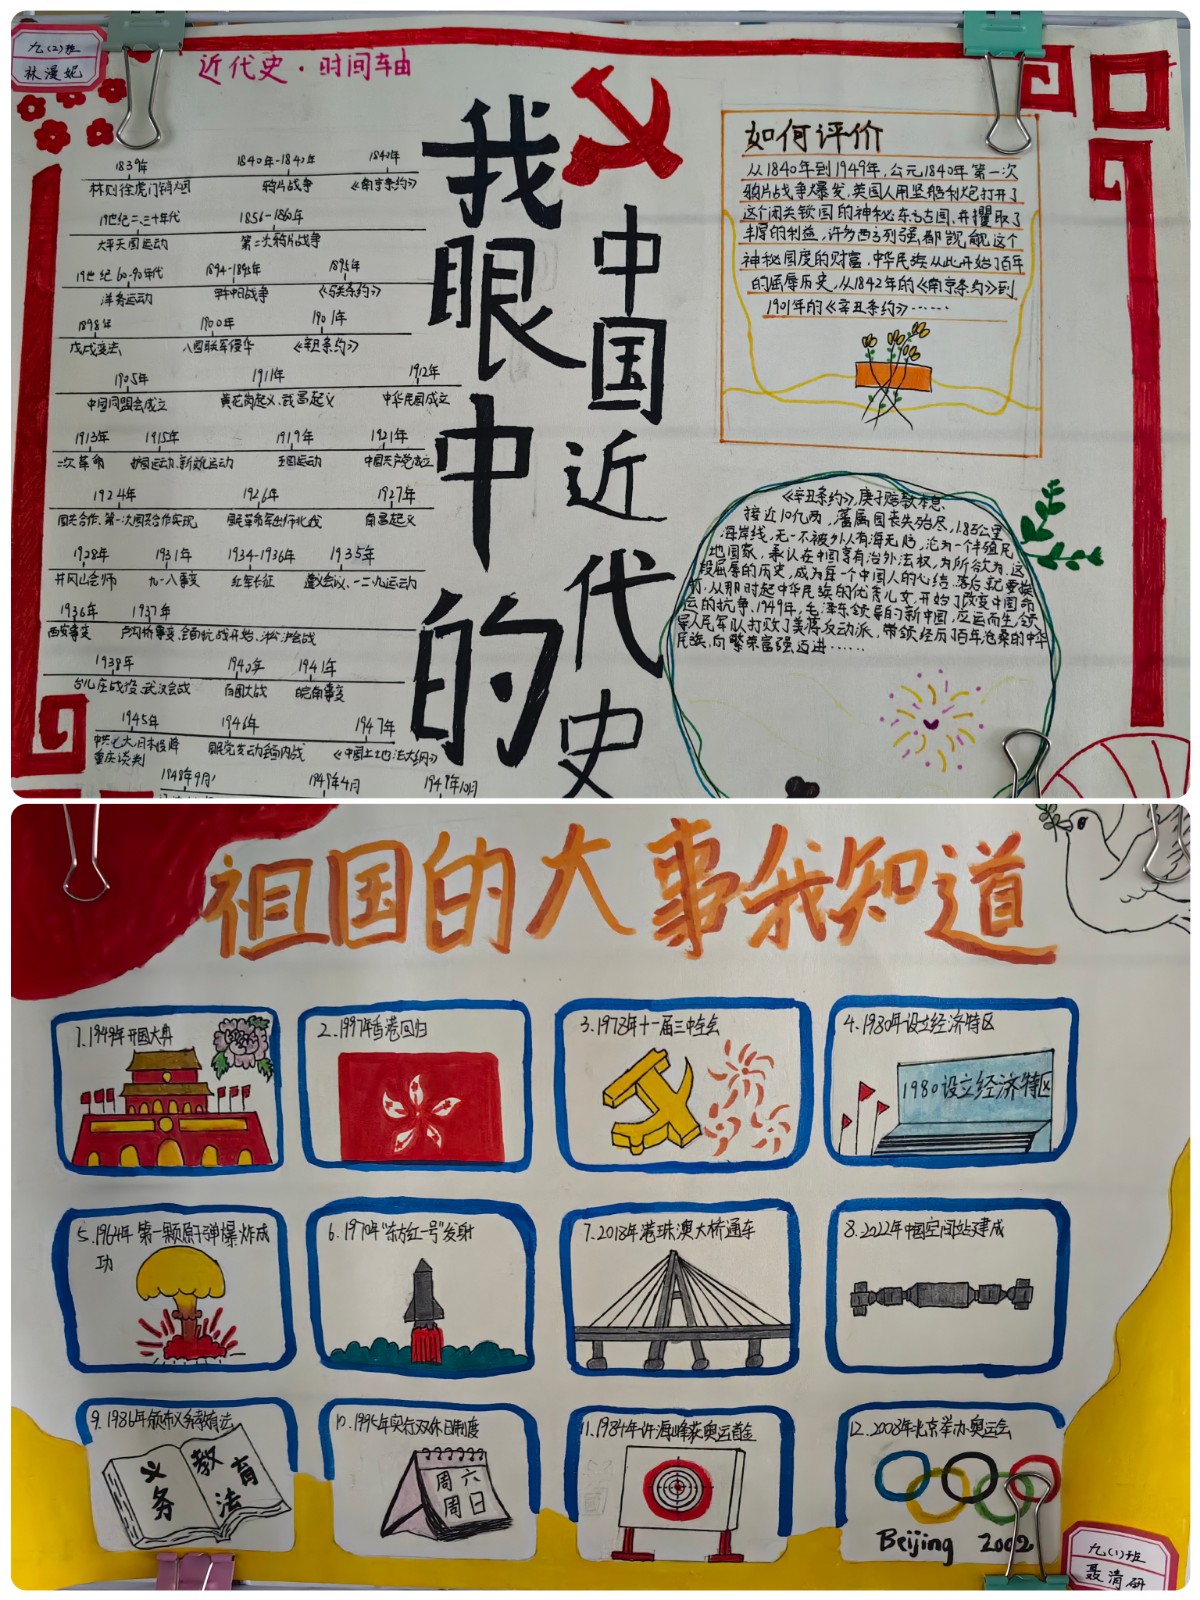 九(2)班
林漫妮
近代史·时间车由
1839年 1840年-1842年 1842年
林则徐虎门销烟 鸦片战争 《南京条约》
19世纪二、三十年代 1856-1860年
太平天国运动 第二次鸦片战争
19世纪60-90年代 1894-1895年 1895年
洋务运动 甲午中日战争 《马关条约》
1898年 1900年 1901年
戊戌变法 八国联军侵华 《辛丑条约》
1905年 1911年 1912年
中国同盟会成立 黄花岗起义、武昌起义 中华民国成立
1913年 1915年 1919年 1921年
二次革命 护国运动、新文化运动 五四运动 中国共产党成立
1924年 1926年 1927年
国共合作、第一次国共合作实现 国民革命军出师北伐 南昌起义
1928年 1931年 1934-1936年 1935年
井冈山会师 九一八事变 红军长征 遵义会议、一二·九运动
1936年 1937年
西安事变 卢沟桥事变、全面抗战开始、淞沪会战
1938年 1940年 1941年
台儿庄战役、武汉会战 百团大战 皖南事变
1945年 1946年 1947年
中共七大、日本投降 国民党发动全面内战 《中国土地法大纲》
重庆谈判
1948年9月 1949年4月 1949年10月
我眼中的
中国近代史
如何评价
从1840年到1949年,公元1840年第一次
鸦片战争爆发,英国人用坚船利炮打开了
这个闭关锁国的神秘东方古国,并攫取了
丰厚的利益,许多西方列强都觊觎这个
神秘国度的财富,中华民族从此开始了百年
的屈辱历史,从1842年的《南京条约》到
1901年的《辛丑条约》……
《辛丑条约》,庚子赔款本息
接近10亿两,藩属国丧失殆尽,1.85公里
海岸线,无一不被外人有海无防,沦为一个半殖民
地国家,承认在中国享有治外法权,为所欲为,这
段屈辱的历史,成为每一个中国人的心结,落后就要挨
打,从那时起中华民族的优秀儿女,开始了改变中国命
运的抗争,1949年,毛泽东领导的新中国,应运而生,领
导人民军队打败了美蒋反动派,带领经历了百年沧桑的中华
民族,向繁荣富强迈进……
祖国的大事我知道
1.1949年开国大典
2.1997年香港回归
3.1978年十一届三中全会
4.1980年设立经济特区
1980设立经济特区
5.1964年第一颗原子弹爆炸成
功
6.1970年“东方红一号”发射
7.2018年港珠澳大桥通车
8.2022年中国空间站建成
9.1986年颁布义务教育法
义务
教育法
10.1995年实行双休日制度
周六
周日
11.1984年许海峰获奥运首金
12.2008年北京举办奥运会
Beijing 2002
九(1)班
聂清研